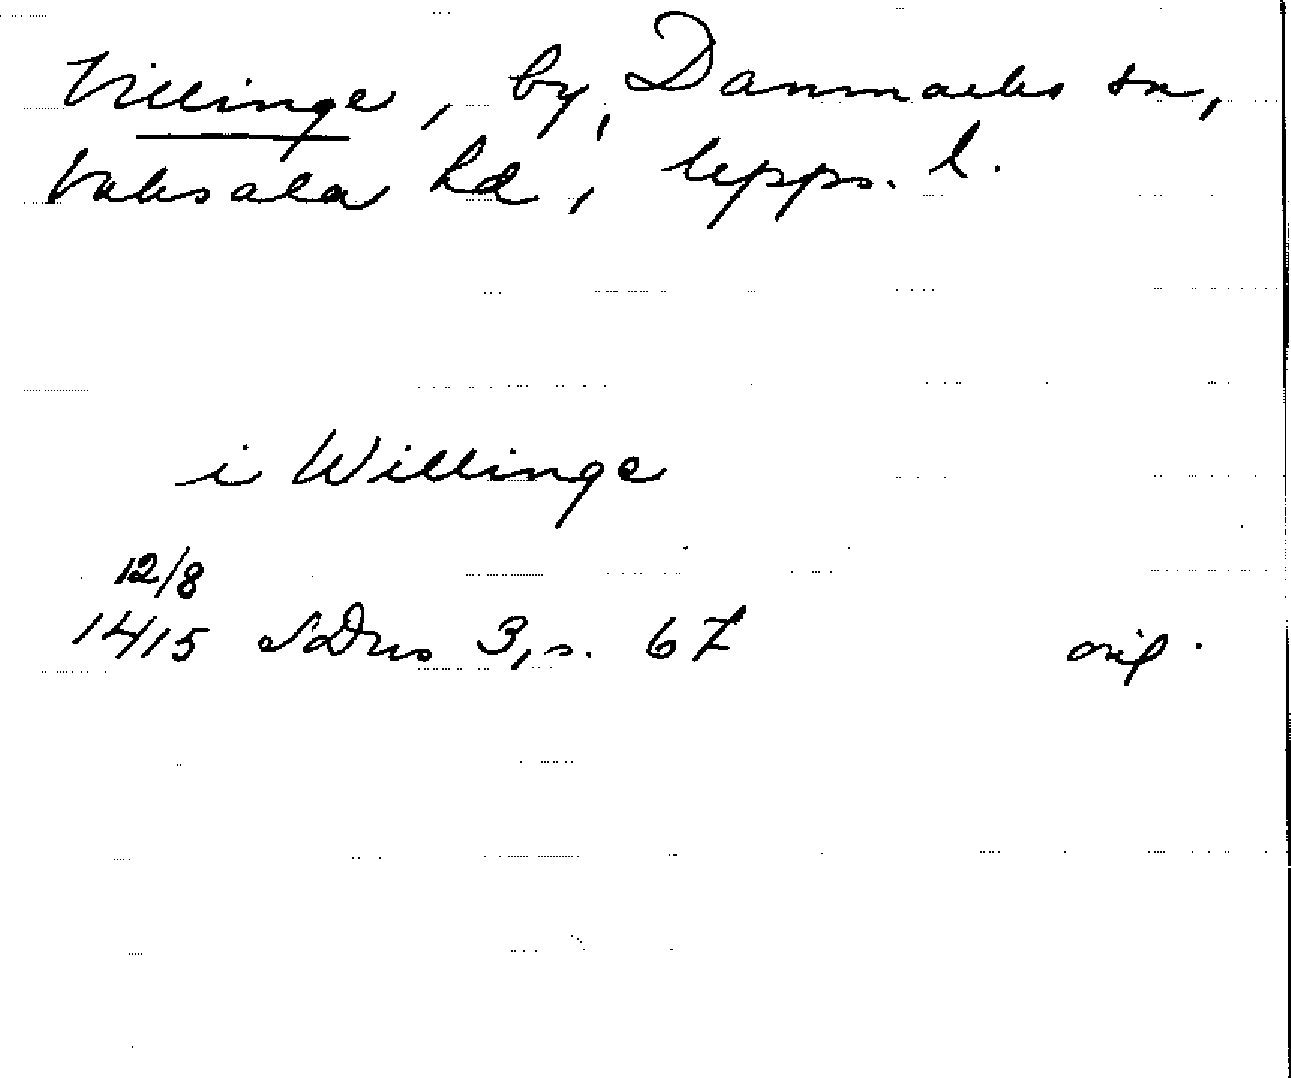 Villinge, by, Danmarks sn,
Vaksala hd, Upps. l.
i Willinge
12/8
1415 SDns 3, s. 67 orig.